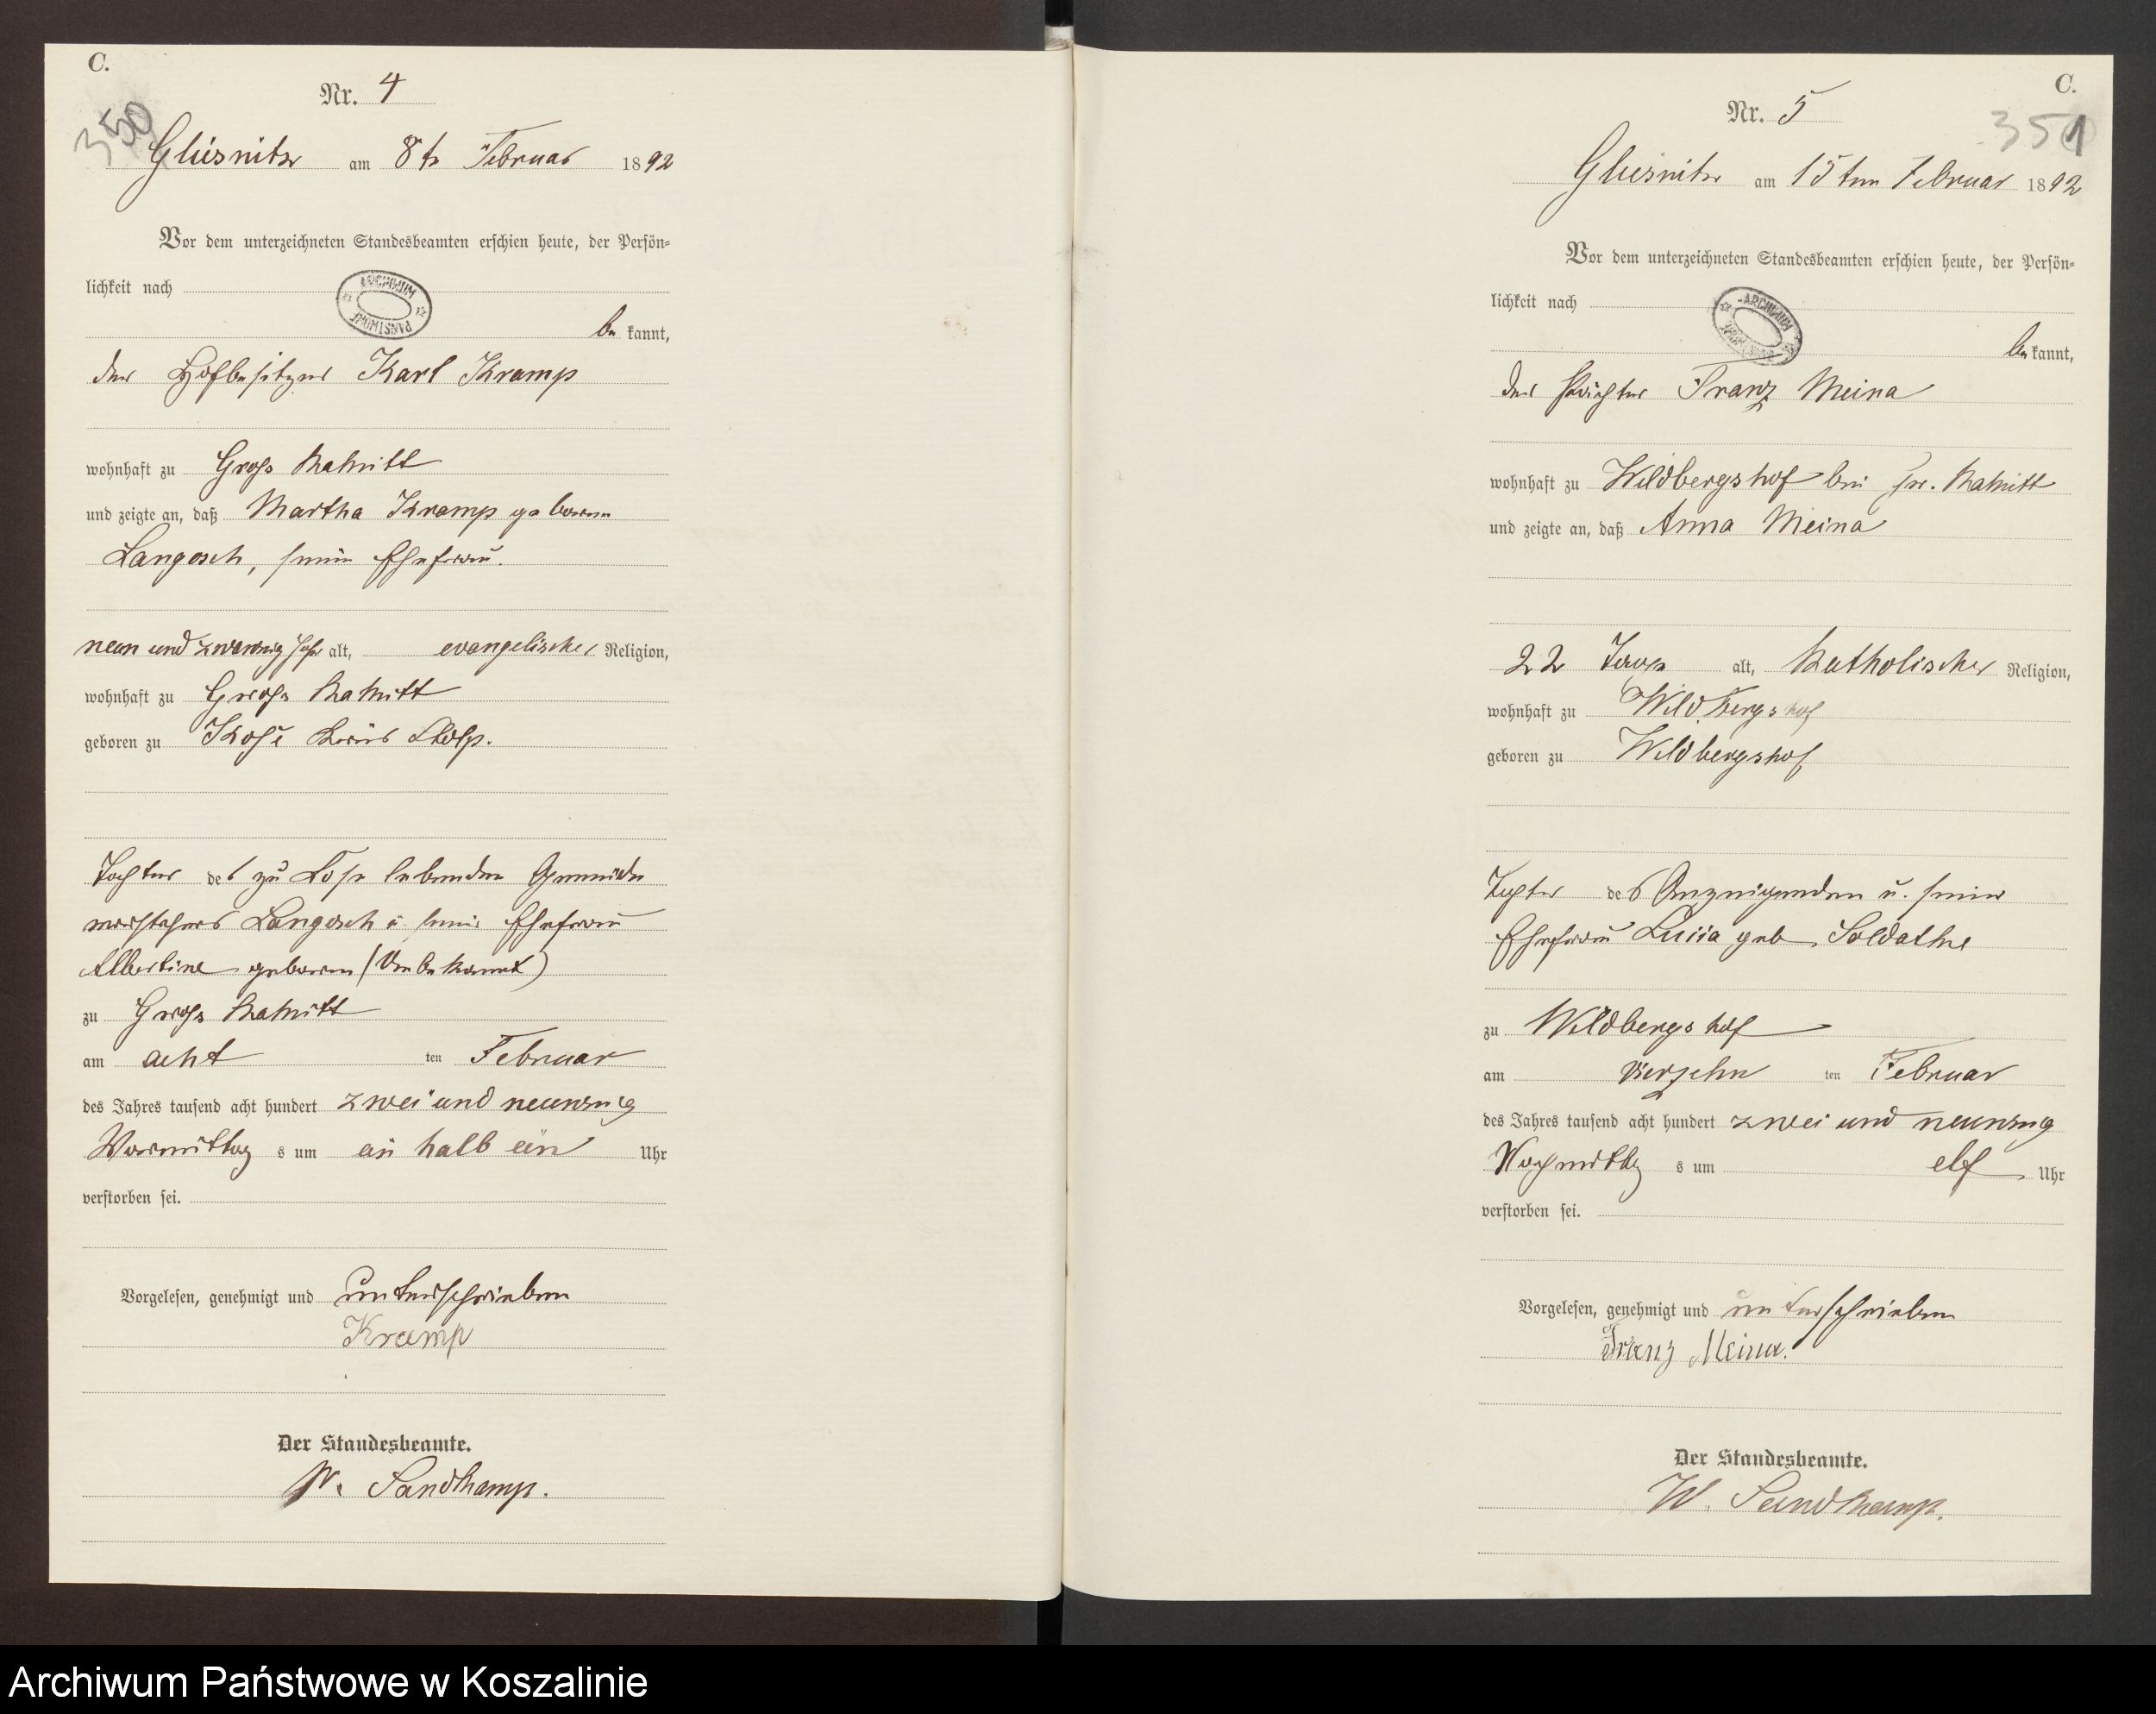 C.
Nr. 4
350
Gliesnitz am 8t Februar 1892
Vor dem unterzeichneten Standesbeamten erschien heute, der Persön-
lichkeit nach
ARCHIWUM PAŃSTWOWE
be kannt,
der Hofbesitzer Karl Kramp
wohnhaft zu Groß Rakitt
und zeigte an, daß Martha Kramp geborene
Langosch, seine Ehefrau.
neun und zwanzig Jahr alt, evangelischer Religion,
wohnhaft zu Groß Rakitt
geboren zu Kreis Stolp.
Tochter des zu Lose lebenden Gemeinde
vorstehers Langosch u. seine Ehefrau
Albertine geborene (Unbekannt)
zu Groß Rakitt
am acht ten Februar
des Jahres tausend acht hundert zwei und neunzig
Vormittag s um halb ein Uhr
verstorben sei.
Vorgelesen, genehmigt und unterschrieben
Kramp
Der Standesbeamte.
W. Sandkamp.
C.
Nr. 5
351
Gliesnitz am 15ten Februar 1892
Vor dem unterzeichneten Standesbeamten erschien heute, der Persön-
lichkeit nach
ARCHIWUM
be kannt,
der Pächter Franz Meina
wohnhaft zu Wildbergshof bei Gr. Rakitt
und zeigte an, daß Anna Meina
22 Tage alt, katholischer Religion,
wohnhaft zu Wildbergshof
geboren zu Wildbergshof
Tochter des Anzeigenden u. seiner
Ehefrau geb. Soldathe
zu Wildbergshof
am vierzehn ten Februar
des Jahres tausend acht hundert zwei und neunzig
Nachmittag s um elf Uhr
verstorben sei.
Vorgelesen, genehmigt und unterschrieben
Franz Meina.
Der Standesbeamte.
W. Sandkamp.
Archiwum Państwowe w Koszalinie